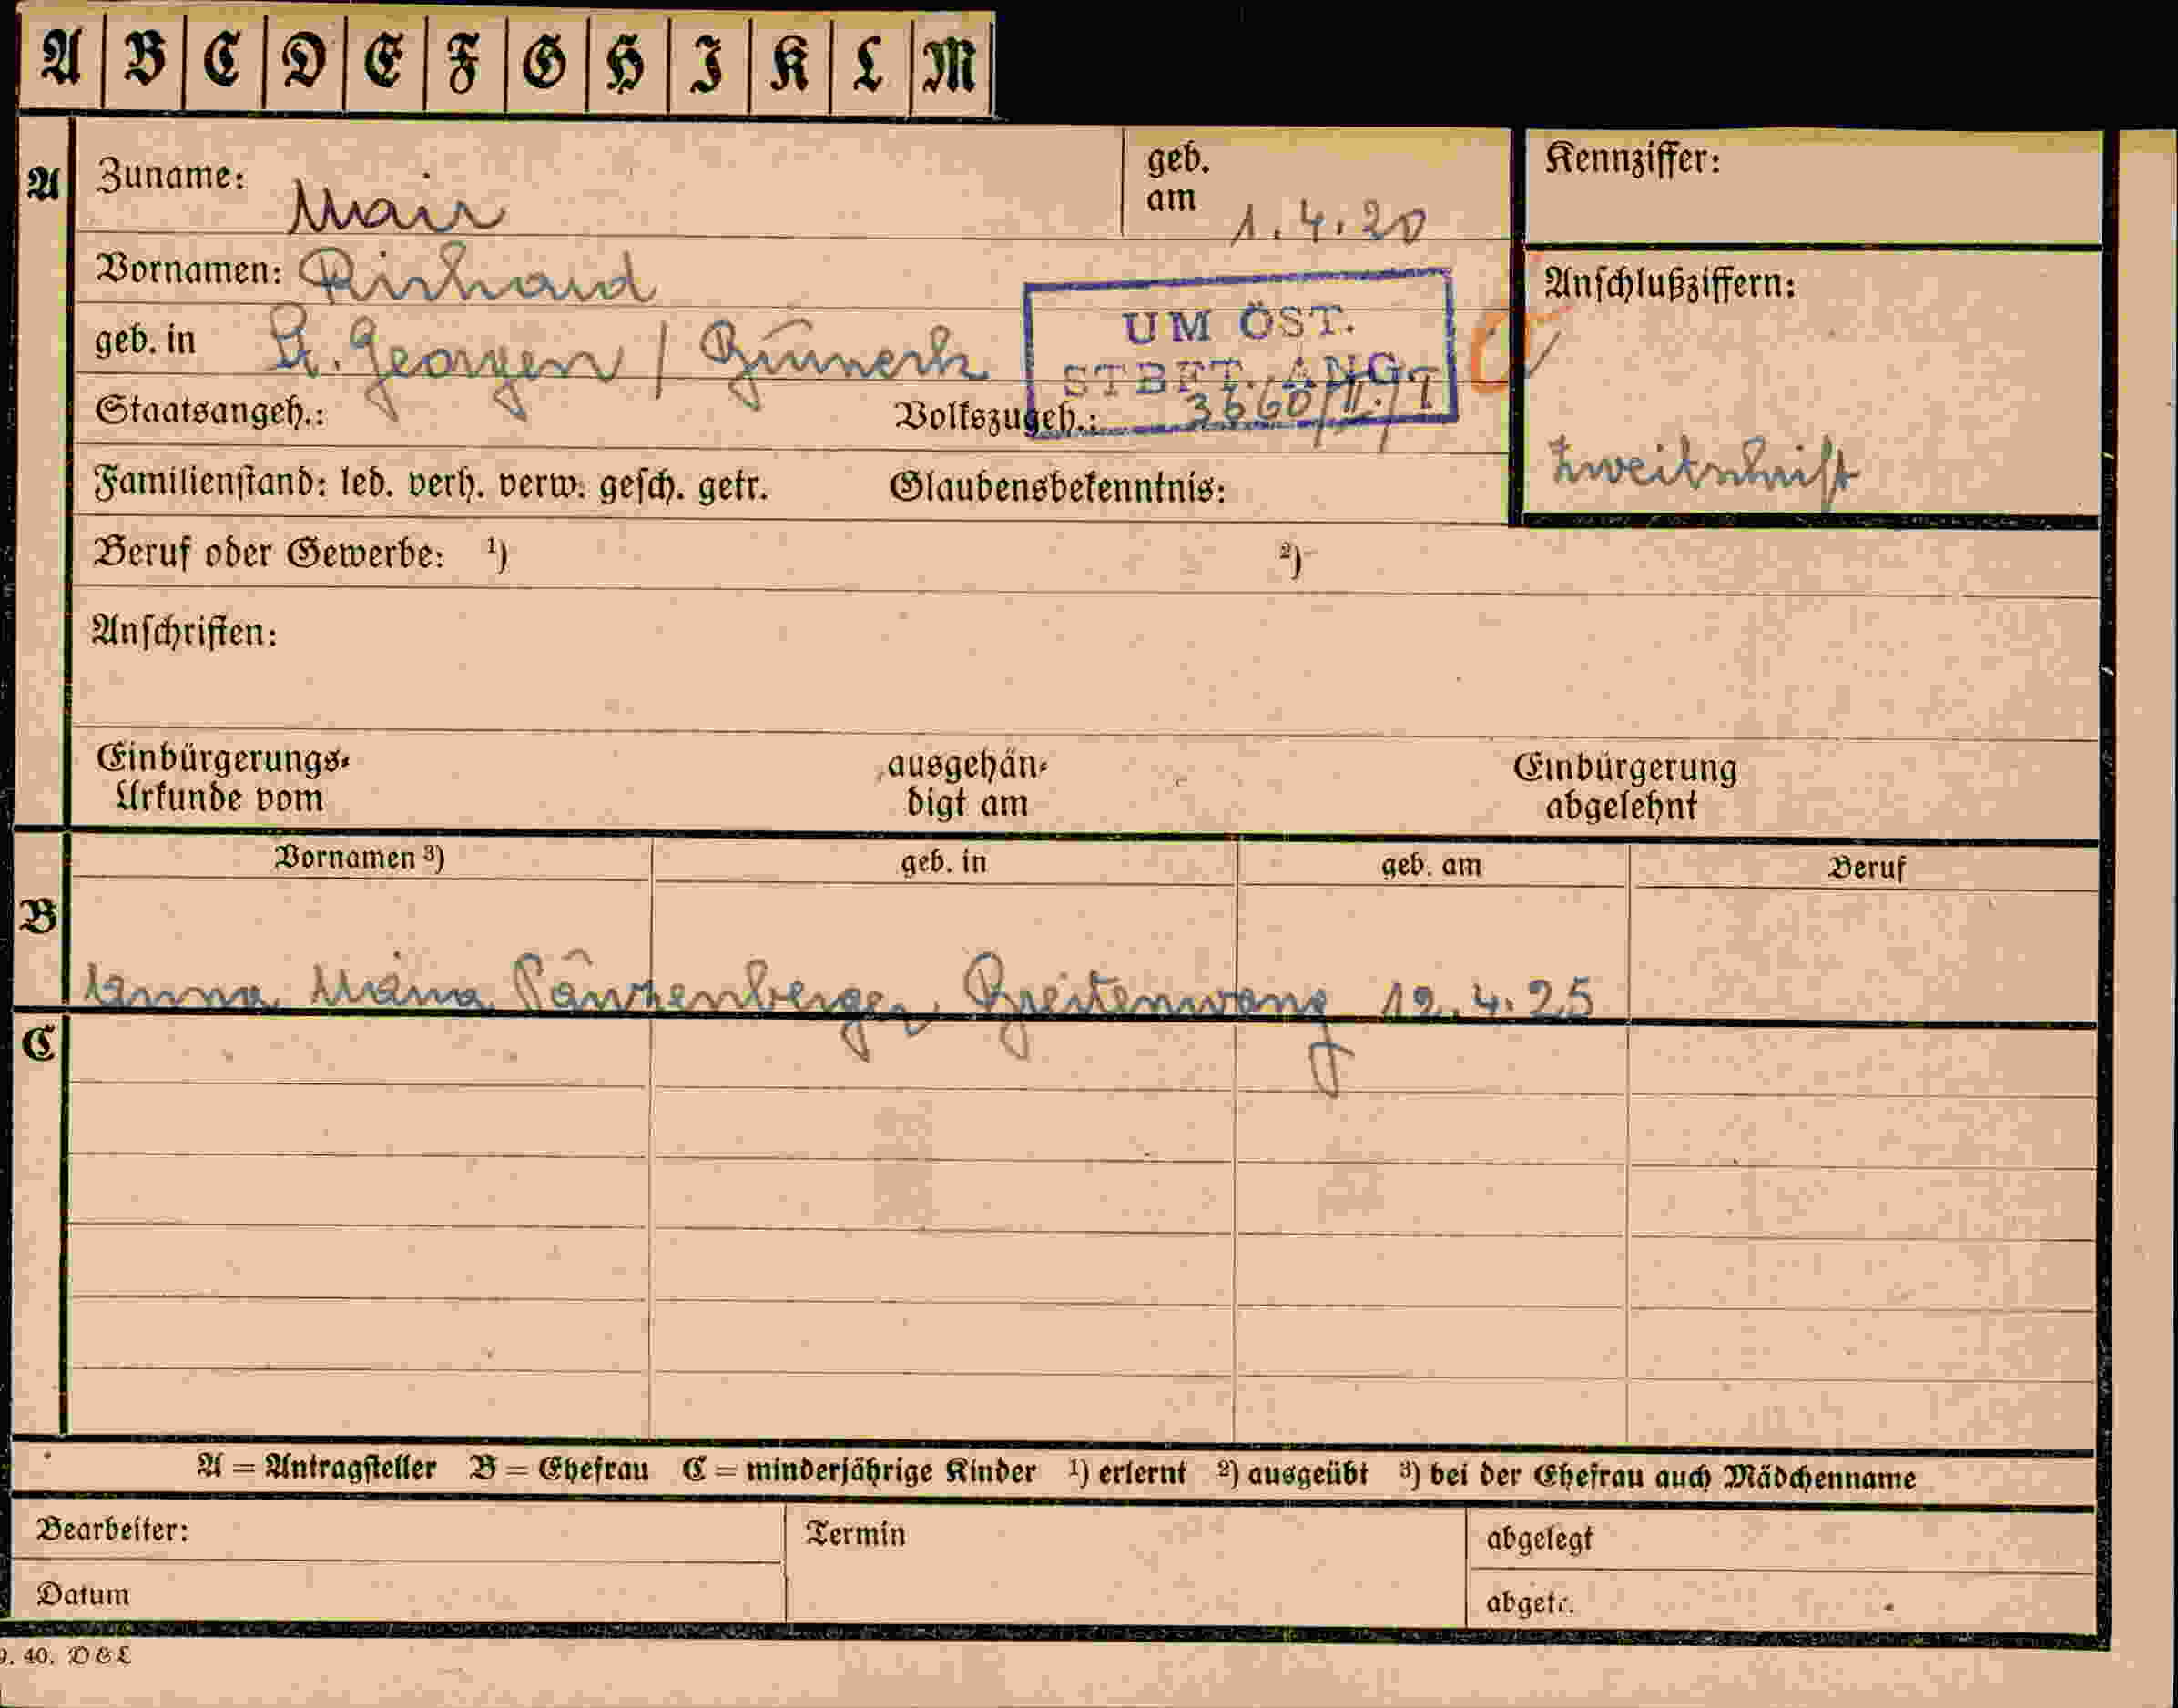 A B C D E F G H I K L M
A
Zuname: Mair
geb. am 1.4.20
Kennziffer:
Vornamen: Richard
Anschlußziffern:
geb. in St. Georgen /
UM ÖST.
STBFT. ANG.
3660/II./T
Staatsangeh.:
Volkszugeh.:
Zweitschrift
Familienstand: led. verh. verw. gesch. getr.
Glaubensbekenntnis:
Beruf oder Gewerbe: ¹) ²)
Anschriften:
Einbürgerungs-
Urkunde vom
ausgehän-
digt am
Einbürgerung
abgelehnt
B
Vornamen ³) geb. in geb. am Beruf
Anna Maria Breitenwang 12.4.25
C
A = Antragsteller B = Ehefrau C = minderjährige Kinder ¹) erlernt ²) ausgeübt ³) bei der Ehefrau auch Mädchenname
Bearbeiter:
Termin
abgelegt
Datum
abgetr.
9. 40. D & L